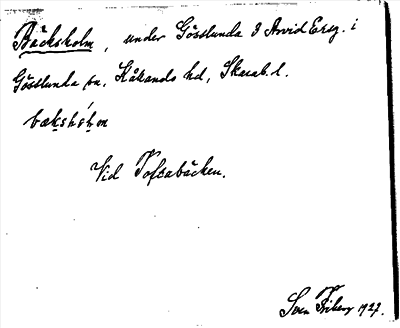 Bäcksholm, under Göstlunda 9 Arvid Ersg. i
Göstlunda sn, Kåkands hd, Skarab. l.
bæksholm
Vid Toftabäcken.
Sven Friberg 1927.